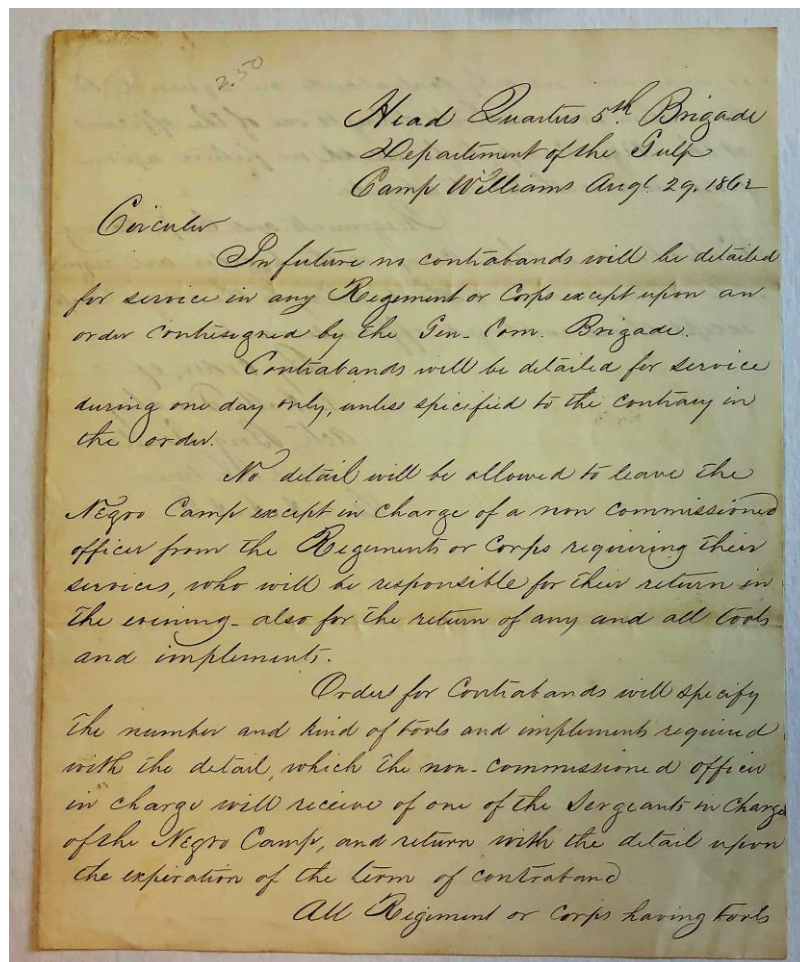 2.50
Head Quarters 5th Brigade
Departement of the Gulf
Camp Williams Augt. 29. 1862
Circular
In future no contrabands will be detailed
for service in any Regiment or Corps except upon an
order contresigned by the Gen. Com. Brigade.
Contrabands will be detailed for service
during one day only, unless specified to the contrary in
the order.
No detail will be allowed to leave the
Negro Camp except in charge of a non commissioned
officer from the Regiments or Corps requiring their
services, who will be responsible for their return in
the evining - also for the return of any and all tools
and implements.
Orders for Contrabands will specify
the number and kind of tools and implements required
with the detail, which the non-commissioned officer
in charge will receive of one of the Sergeants in Charge
of the Negro Camp, and return with the detail upon
the expiration of the term of contraband
All Regiment or Corps having tools